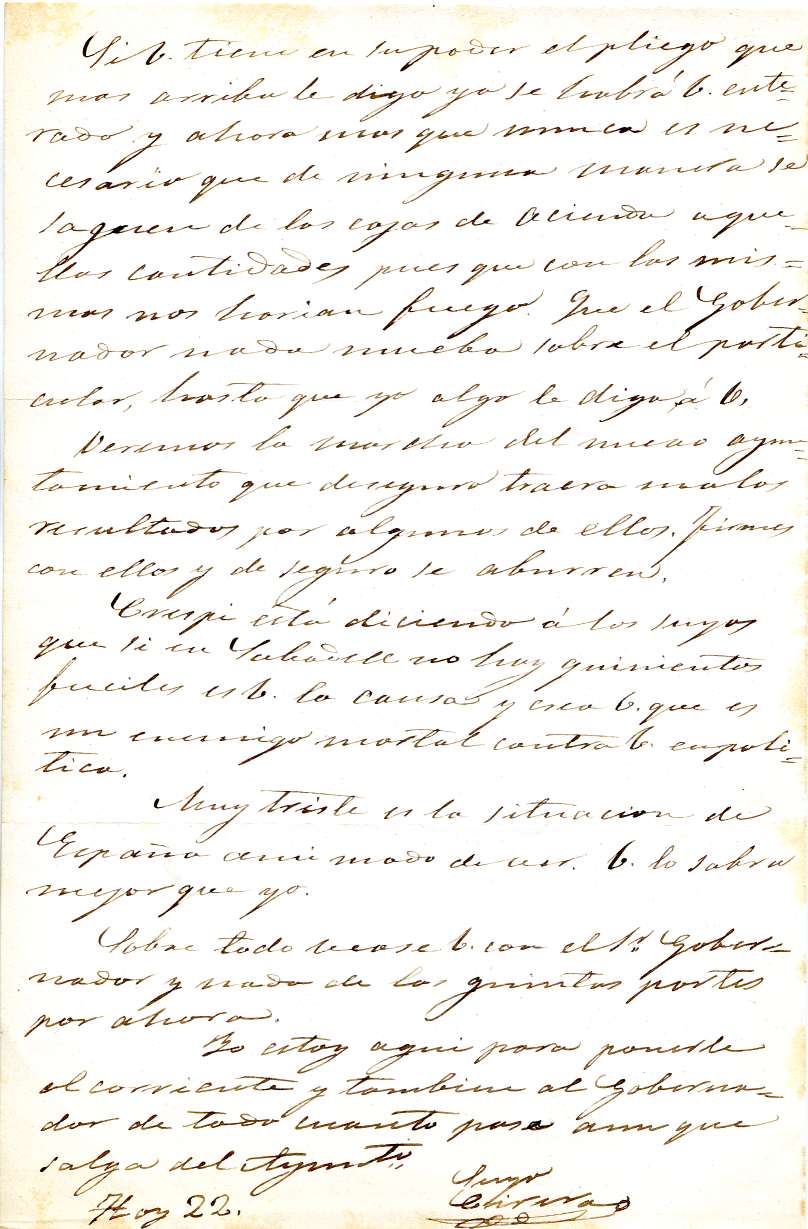 Si V. tiene en su poder el pliego que
mas arriba le digo ya se habrá V. ente-
rado y ahora mas que nunca es ne-
cesario que de ninguna manera se
saquen de las cajas de acienda aque-
llas cantidades pues que con las mis-
mas nos harian fuego. Que el Gober-
nador nada mueba sobre el parti-
cular, hasta que yo algo le diga á V.
Veremos la marcha del nuevo ayun-
tamiento que deseguro traera malos
resultados por algunos de ellos. Firmes
con ellos y de seguro se aburren.
Crespi está diciendo á los suyos
que si en Sabadell no hay quinientos
fuciles es V. la causa y crea V. que es
un enemigo mortal contra V. en poli-
tica.
Muy triste es la situacion de
España ami modo de ver. V. lo sabra
mejor que yo.
Sobre todo vease V. con el Sr. Gober-
nador y nada de las quintas partes
por ahora.
Yo estoy aqui para ponerle
al corriente y tambien al Goberna-
dor de todo cuanto pase aun que
salga del Ayunto.
Suyo
Hoy 22.